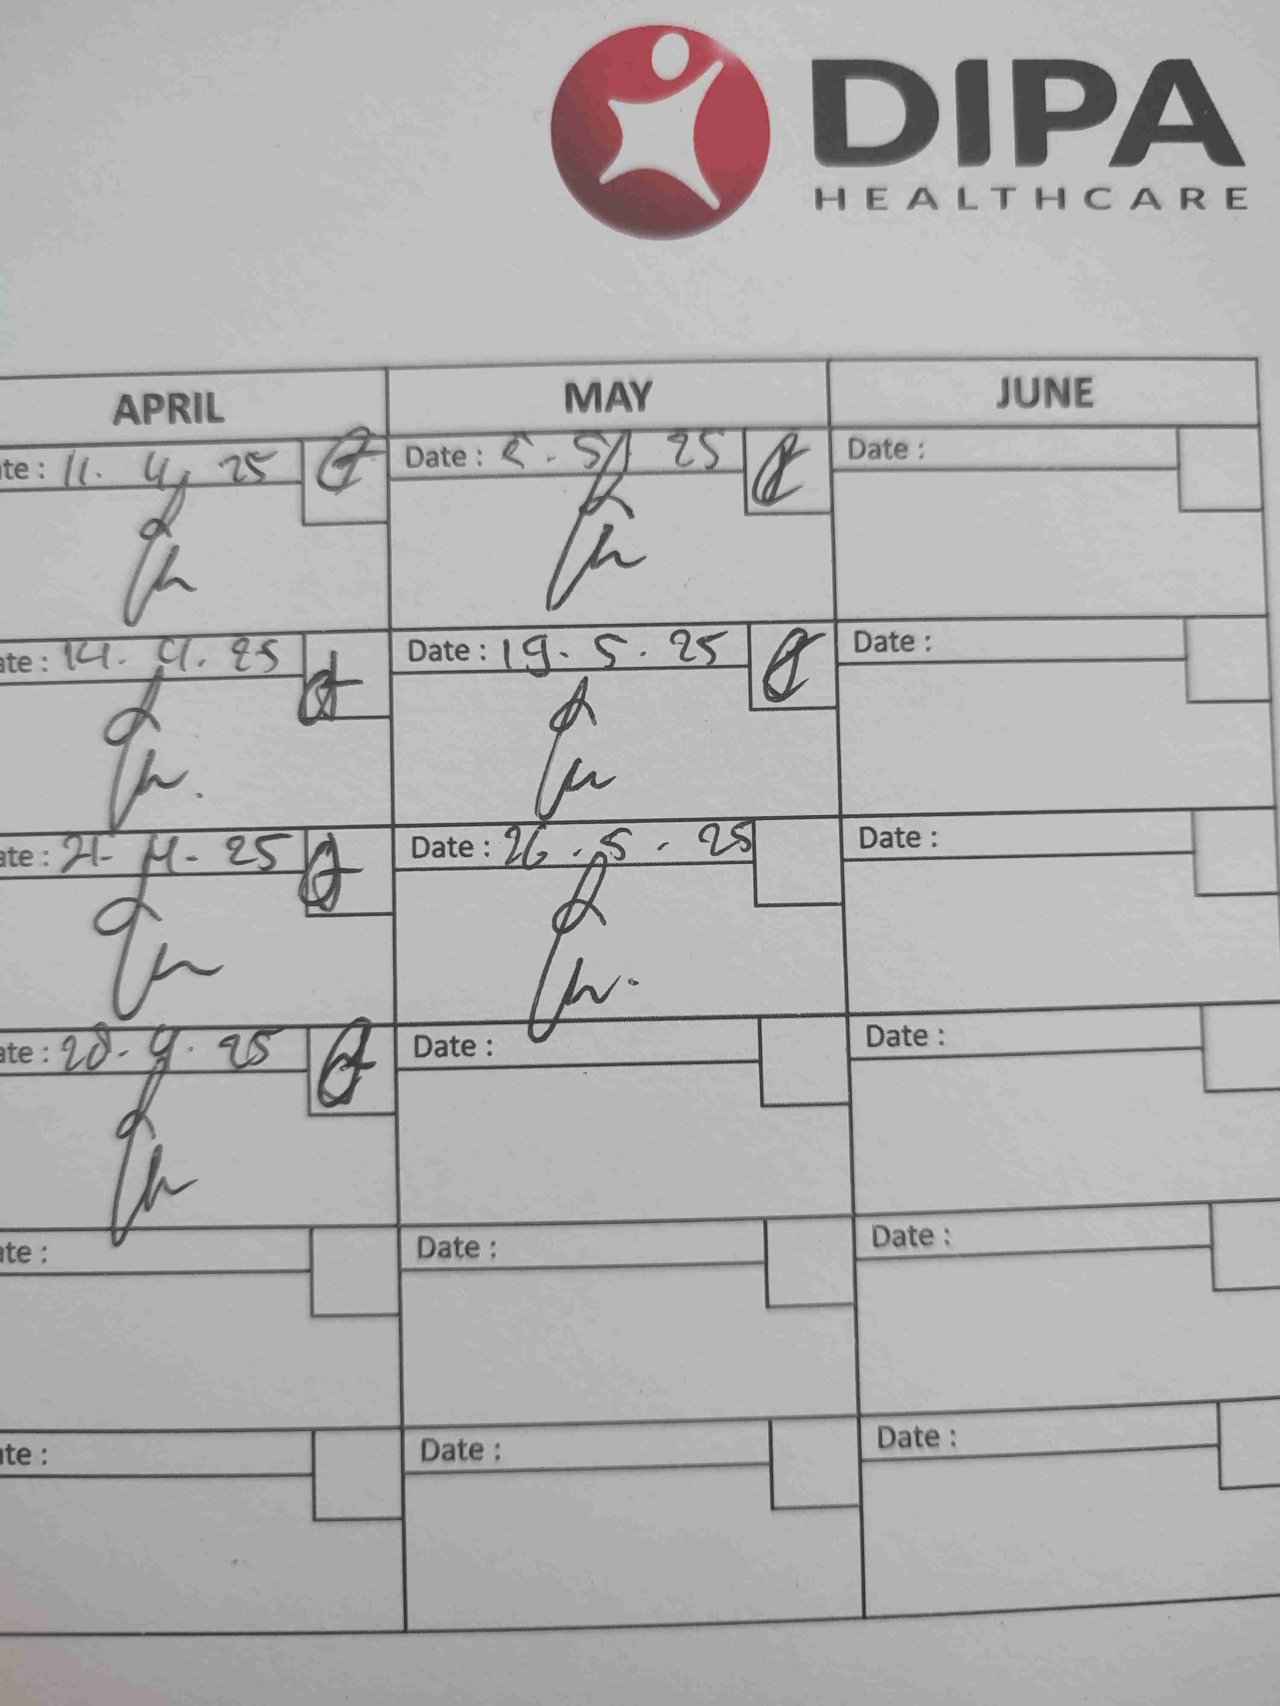 DIPA
HEALTHCARE
APRIL MAY JUNE
ate : 11. 4. 25 Date : 5. 5. 25 Date :
ate : 14. 4. 25 Date : 19. 5. 25 Date :
ate : 21. 4. 25 Date : 26. 5. 25 Date :
ate : 28. 4. 25 Date : Date :
ate : Date : Date :
ate : Date : Date :